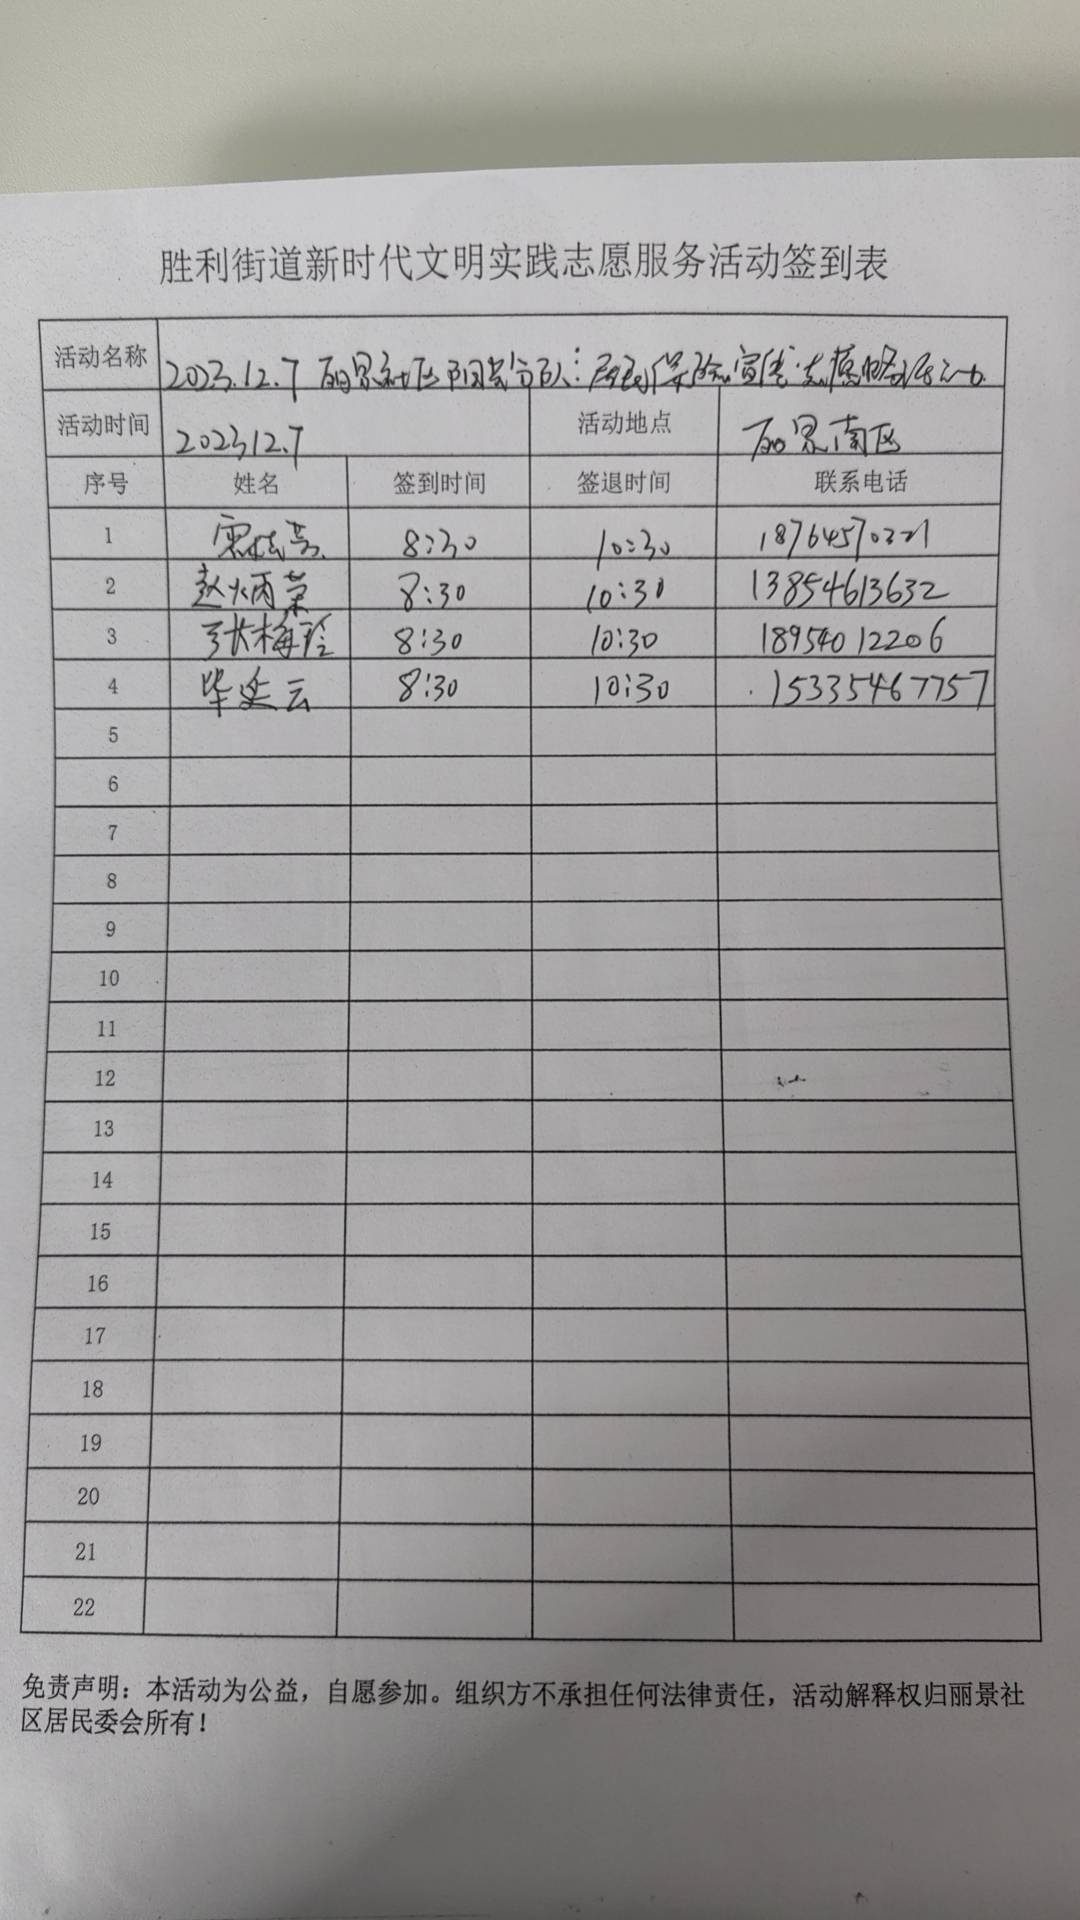 胜利街道新时代文明实践志愿服务活动签到表
活动名称 2023.12.7 丽景社区 分队：居民保险宣传志愿服务活动
活动时间 2023.12.7 活动地点 丽景南区
序号 姓名 签到时间 签退时间 联系电话
1 8:30 10:30 18764570321
2 赵炳荣 8:30 10:30 13854613632
3 张梅玲 8:30 10:30 18954012206
4 毕延云 8:30 10:30 15335467757
5
6
7
8
9
10
11
12
13
14
15
16
17
18
19
20
21
22
免责声明：本活动为公益，自愿参加。组织方不承担任何法律责任，活动解释权归丽景社
区居民委会所有！